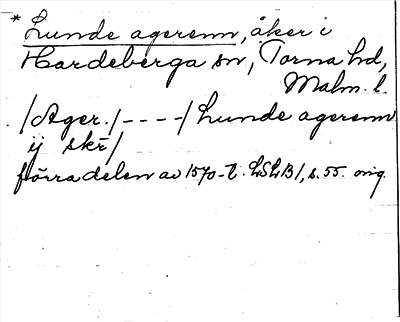 * Lunde agerenn, åker i
Hardeberga sn, Torna hd,
Malm. l.
/Ager./----/Lunde agerenn
ij skr/
förra delen av 1570-t. LSLB1, s. 55. orig.